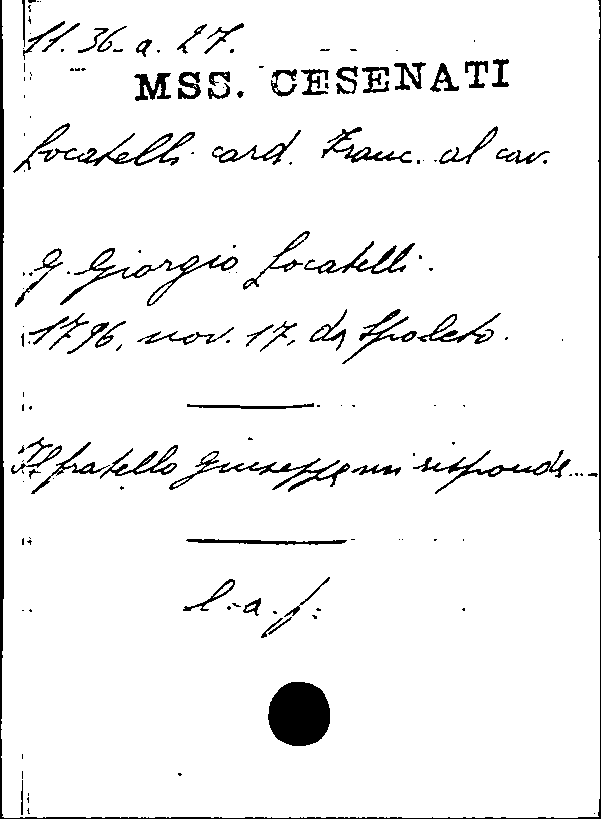 11. 36. a. 27.
MSS. CESENATI
Locatelli card. Franc. al cav.
G. Giorgio Locatelli.
1796, nov. 17, da Spoleto.
Il fratello Giuseppe mi risponde....
l. a. f.